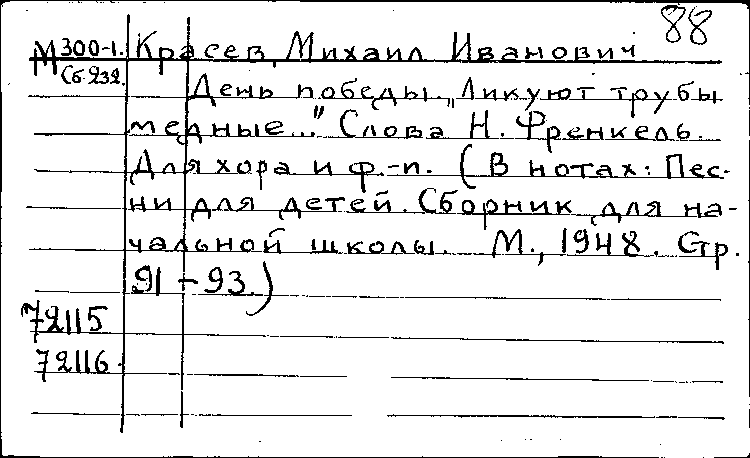 88
М 300-1. Красев, Михаил Иванович
Сб.232.
День победы. „Ликуют трубы
медные..." Слова Н. Френкель.
Для хора и ф.-п. (В нотах: Пес-
ни для детей. Сборник для на-
чальной школы. М., 1948. Стр.
91-93.)
72115
72116.